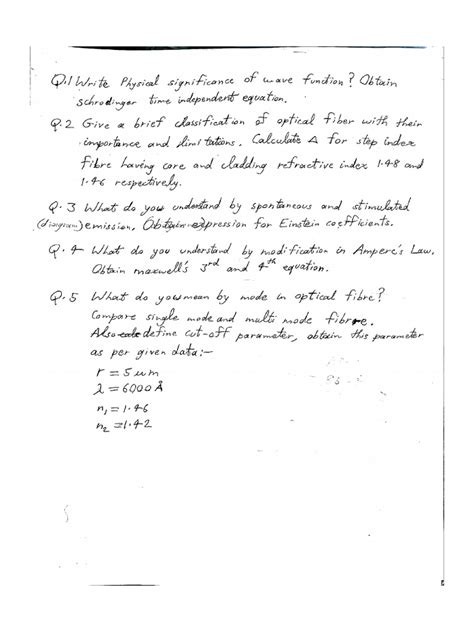 Q.1 Write Physical significance of wave function? Obtain
schrodinger time independent equation.
Q.2 Give a brief classification of optical fiber with their
importance and limitations. Calculate Δ for step index
Fibre having core and cladding refractive index 1.48 and
1.46 respectively.
Q.3 What do you understand by spontaneous and stimulated
(diagram) emission. Obtain expression for Einstein coefficients.
Q.4 What do you understand by modification in Ampere's Law.
Obtain maxwell's 3rd and 4th equation.
Q.5 What do you mean by mode in optical fibre?
Compare single mode and multi mode fibre.
Also define cut-off parameter, obtain this parameter
as per given data:-
r = 5 um
λ = 6000 Å
n₁ = 1.46
n₂ = 1.42